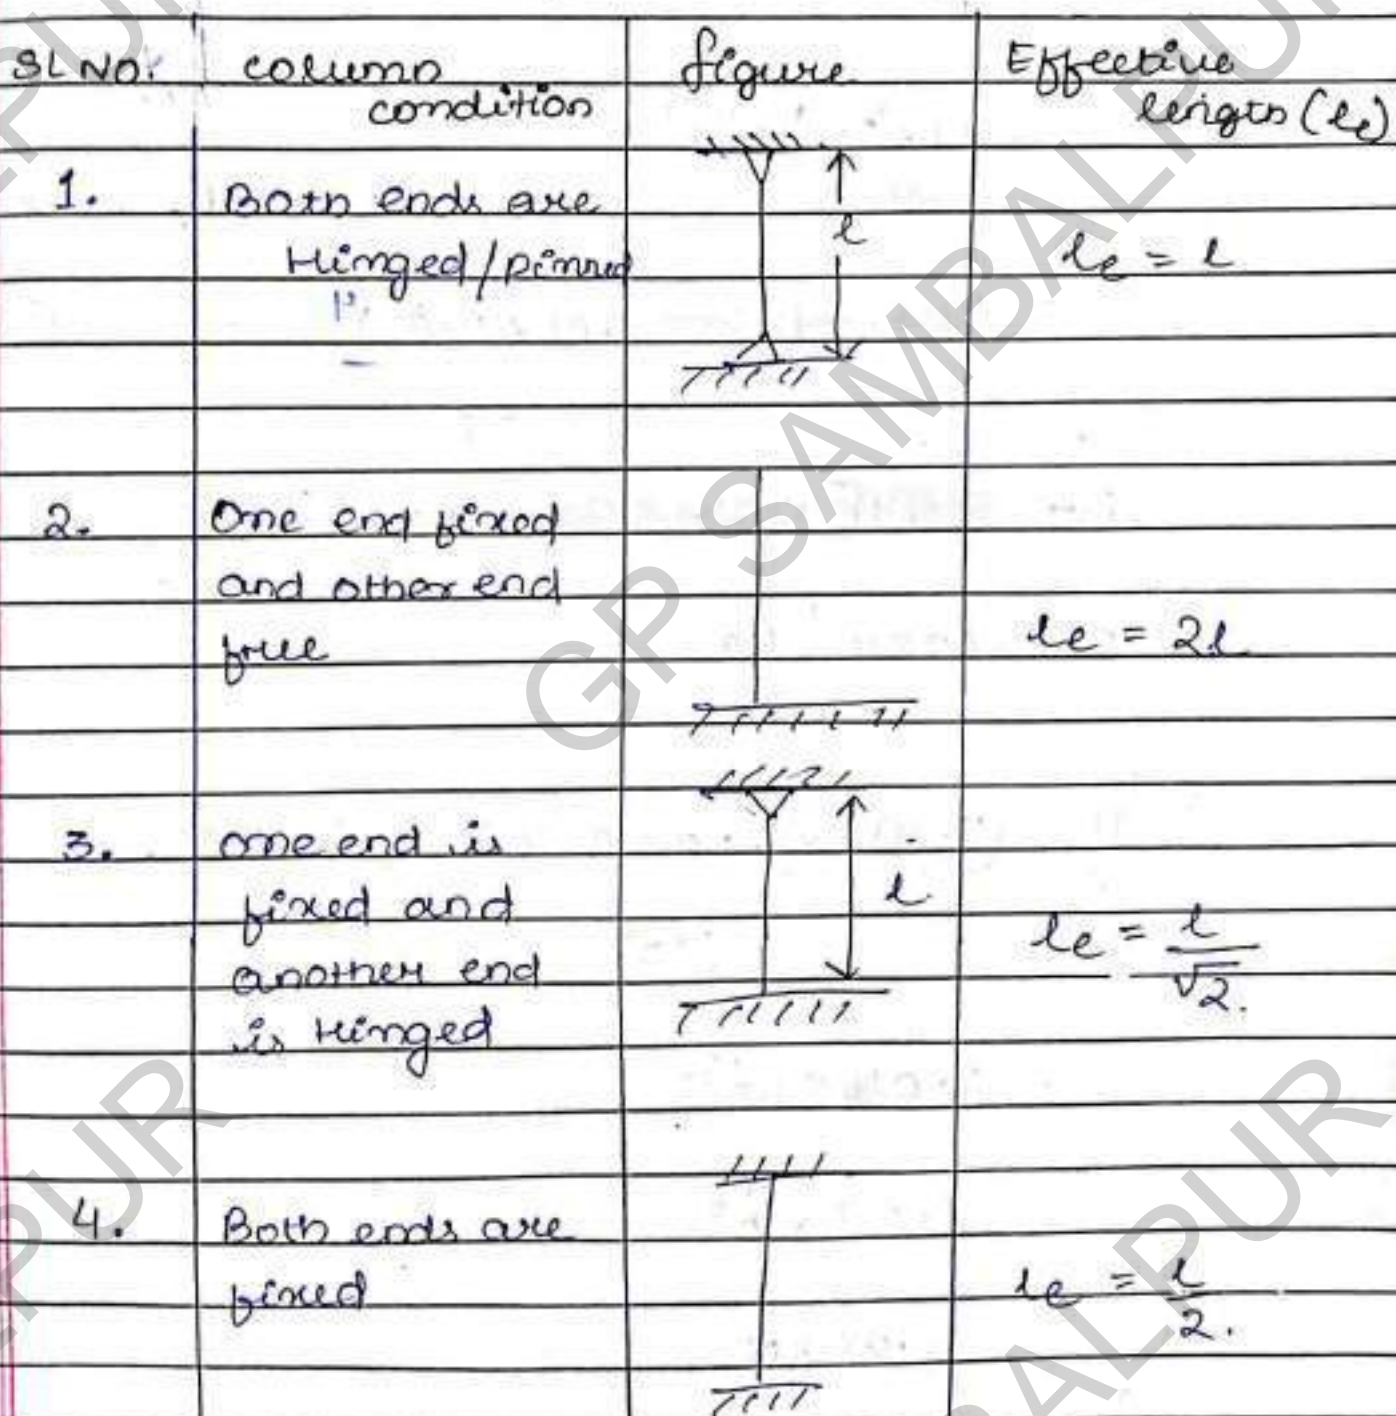 SL NO. column condition figure Effective length (le)
1. Both ends are
Hinged/pinned
l
le = l
2. One end fixed
and other end
free
le = 2l
3. one end is
fixed and
another end
is Hinged
l
le = l/√2.
4. Both ends are
fixed
le = l/2.
GP SAMBALPUR